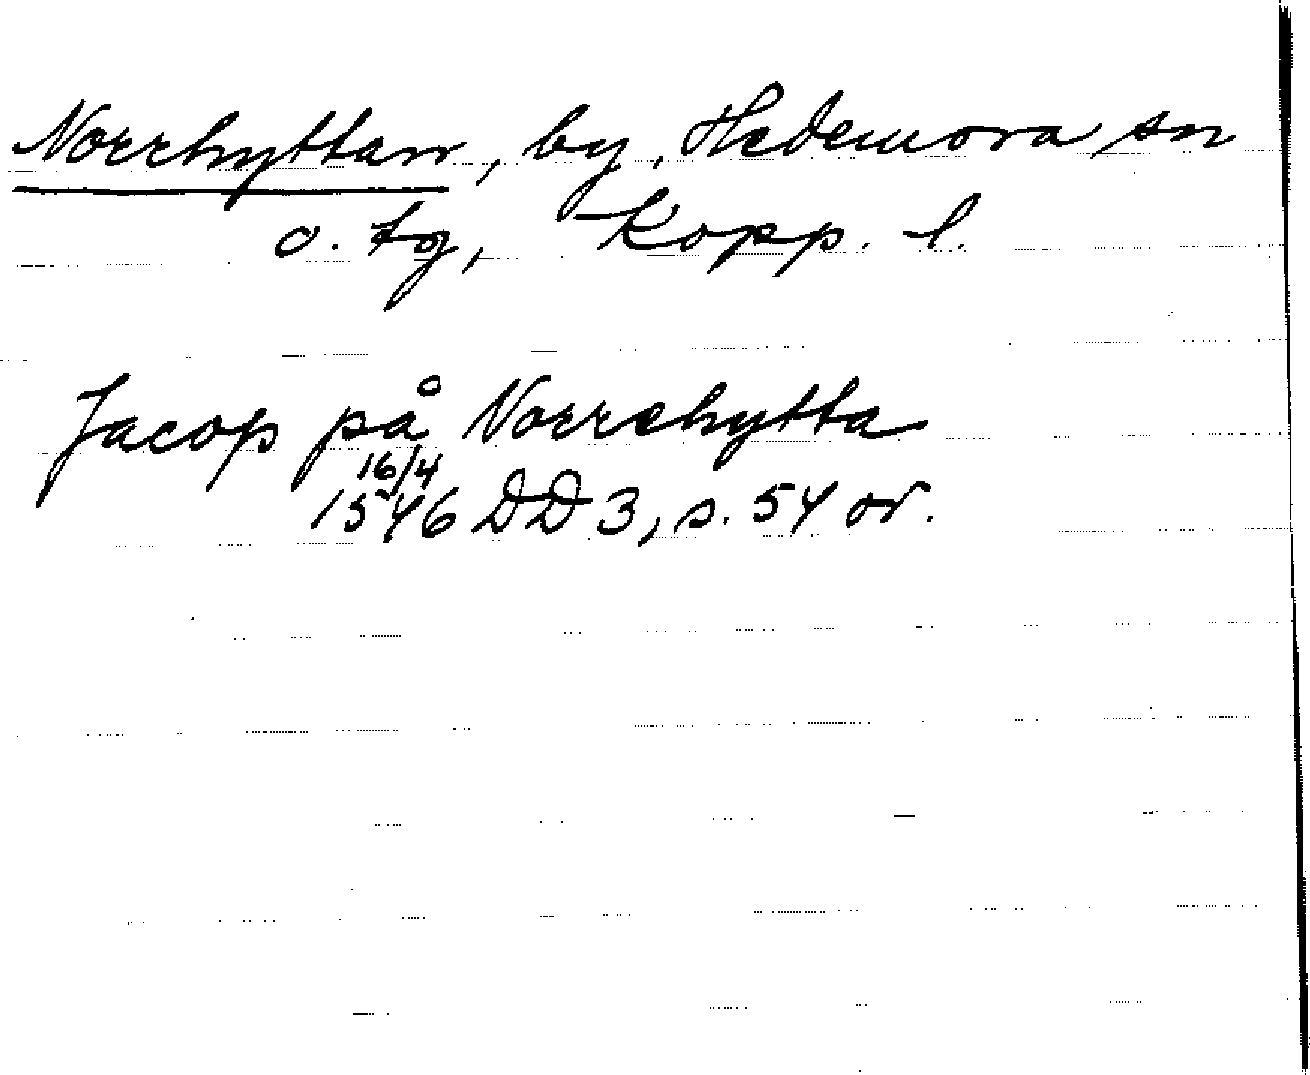 Norrhyttan, by, Hedemora sn
o. tg, Kopp. l.
Jacop på Norrehytta
16/4
1546 DD 3, s. 54 or.